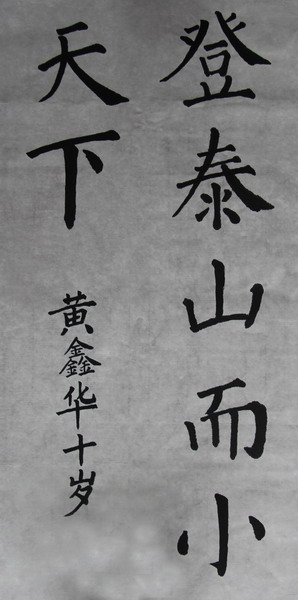 登泰山而小
天下
黄鑫华十岁